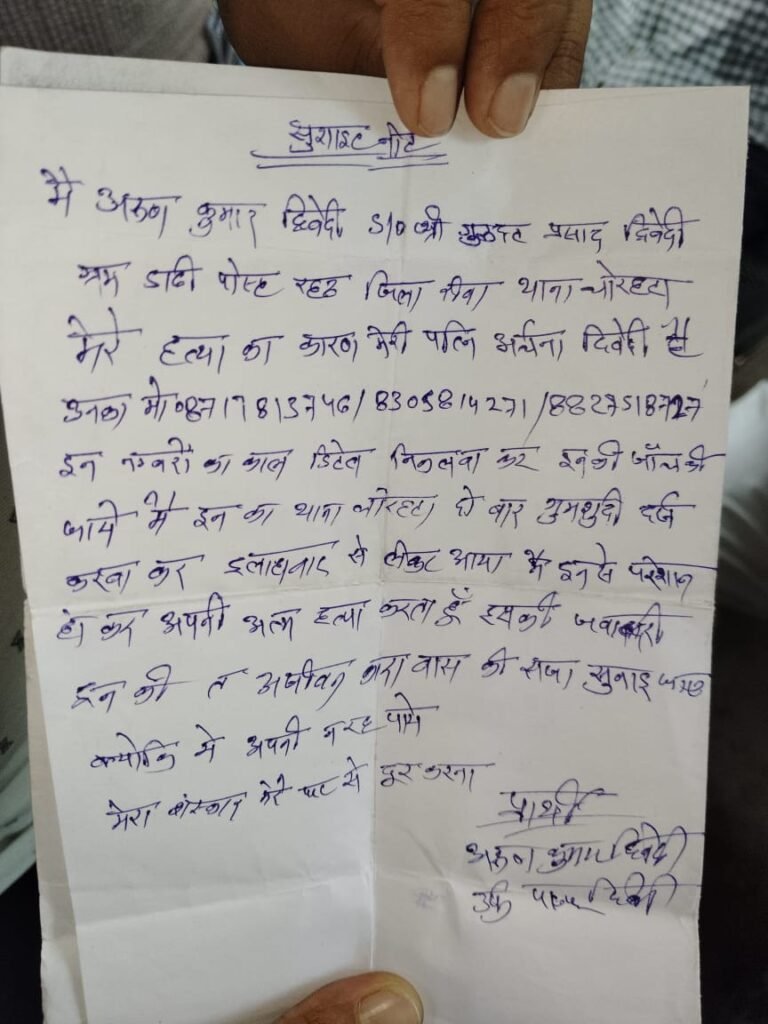 सुसाइट नोट
मै अरूण कुमार द्विवेदी S/o श्री गुरुदत्त प्रसाद द्विवेदी
ग्राम डाढी पोस्ट रहट जिला रीवा थाना चोरहटा
मेरे हत्या का कारण मेरी पत्नि अर्चना द्विवेदी है
उनका मो 08717813746/8305814271/8827518727
इन नम्बरों का काल डिटेल निकलवा कर इनकी जॉच की
जाये मै इन का थाना चोरहटा दो बार गुमशुदी दर्ज
करवा कर इलाहावाद से लौकट आया मै इन से परेशान
हो कर अपनी अत्म हत्या करता हूँ इसकी
इन की अजीवन कारा वास की सजा सुनाइ जाय
क्योकि ये अपनी न रह पाये
मेरा मेरे घर से दूर करना
प्रार्थी
अरूण कुमार द्विवेदी
उर्फ द्विवेदी